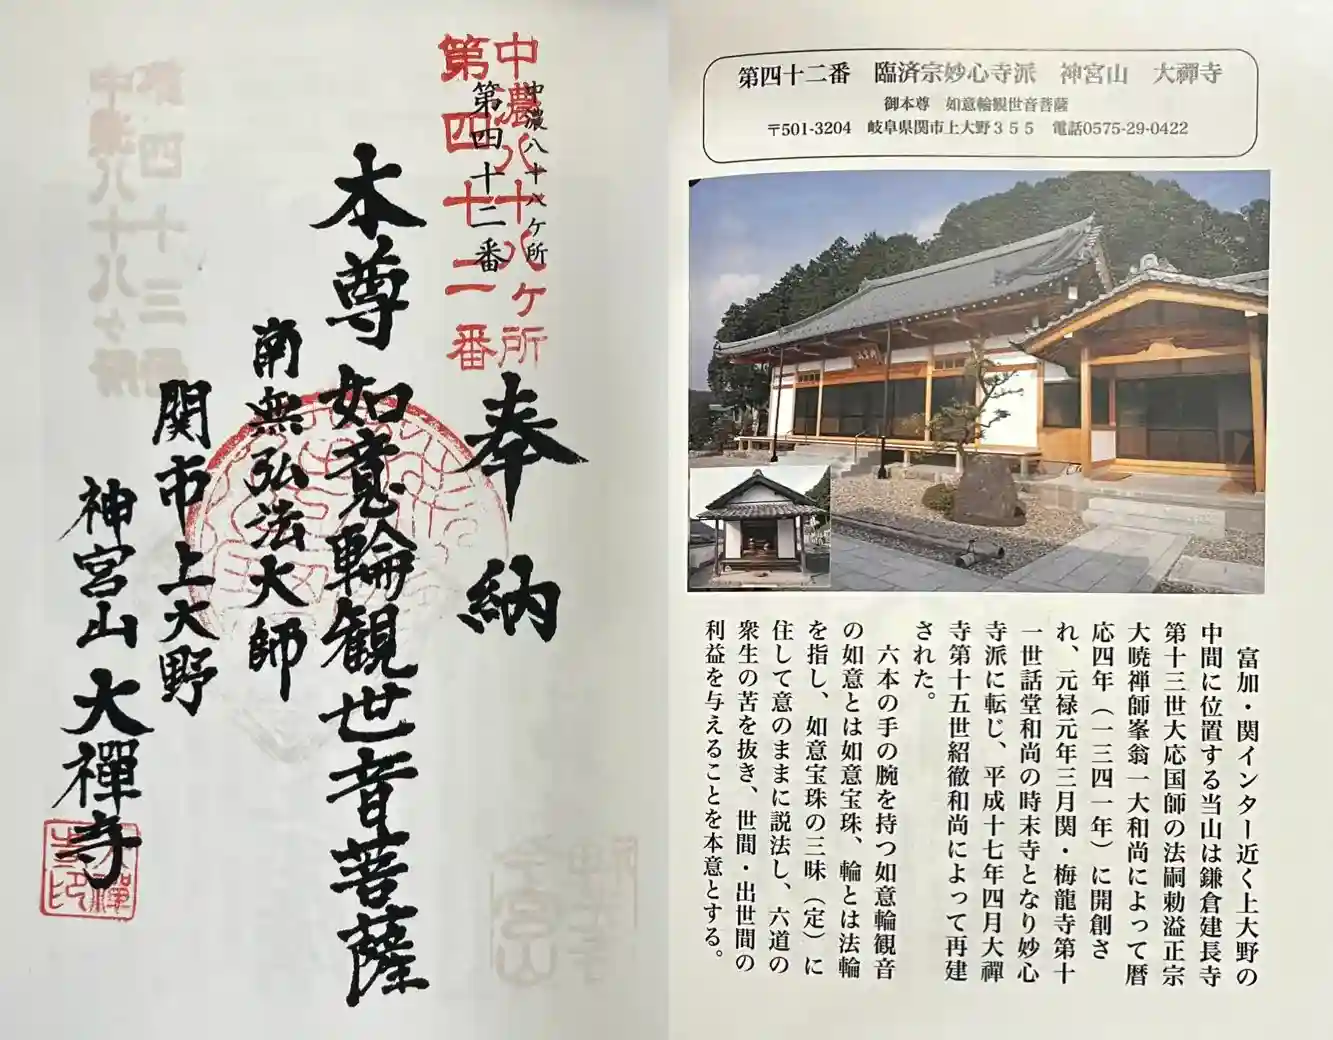 中濃八十八ヶ所
第四十二番
中濃八十八ヶ所
第四十二番
奉納
本尊如意輪観世音菩薩
南無弘法大師
関市上大野
神宮山大禪寺
第四十二番　臨済宗妙心寺派　神宮山　大禪寺
御本尊　如意輪観世音菩薩
〒501-3204　岐阜県関市上大野３５５　電話0575-29-0422
富加・関インター近く上大野の
中間に位置する当山は鎌倉建長寺
第十三世大応国師の法嗣勅溢正宗
大暁禅師峯翁一大和尚によって暦
応四年（一三四一年）に開創さ
れ、元禄元年三月関・梅龍寺第十
一世話堂和尚の時末寺となり妙心
寺派に転じ、平成十七年四月大禪
寺第十五世紹徹和尚によって再建
された。
六本の手の腕を持つ如意輪観音
の如意とは如意宝珠、輪とは法輪
を指し、如意宝珠の三昧（定）に
住して意のままに説法し、六道の
衆生の苦を抜き、世間・出世間の
利益を与えることを本意とする。